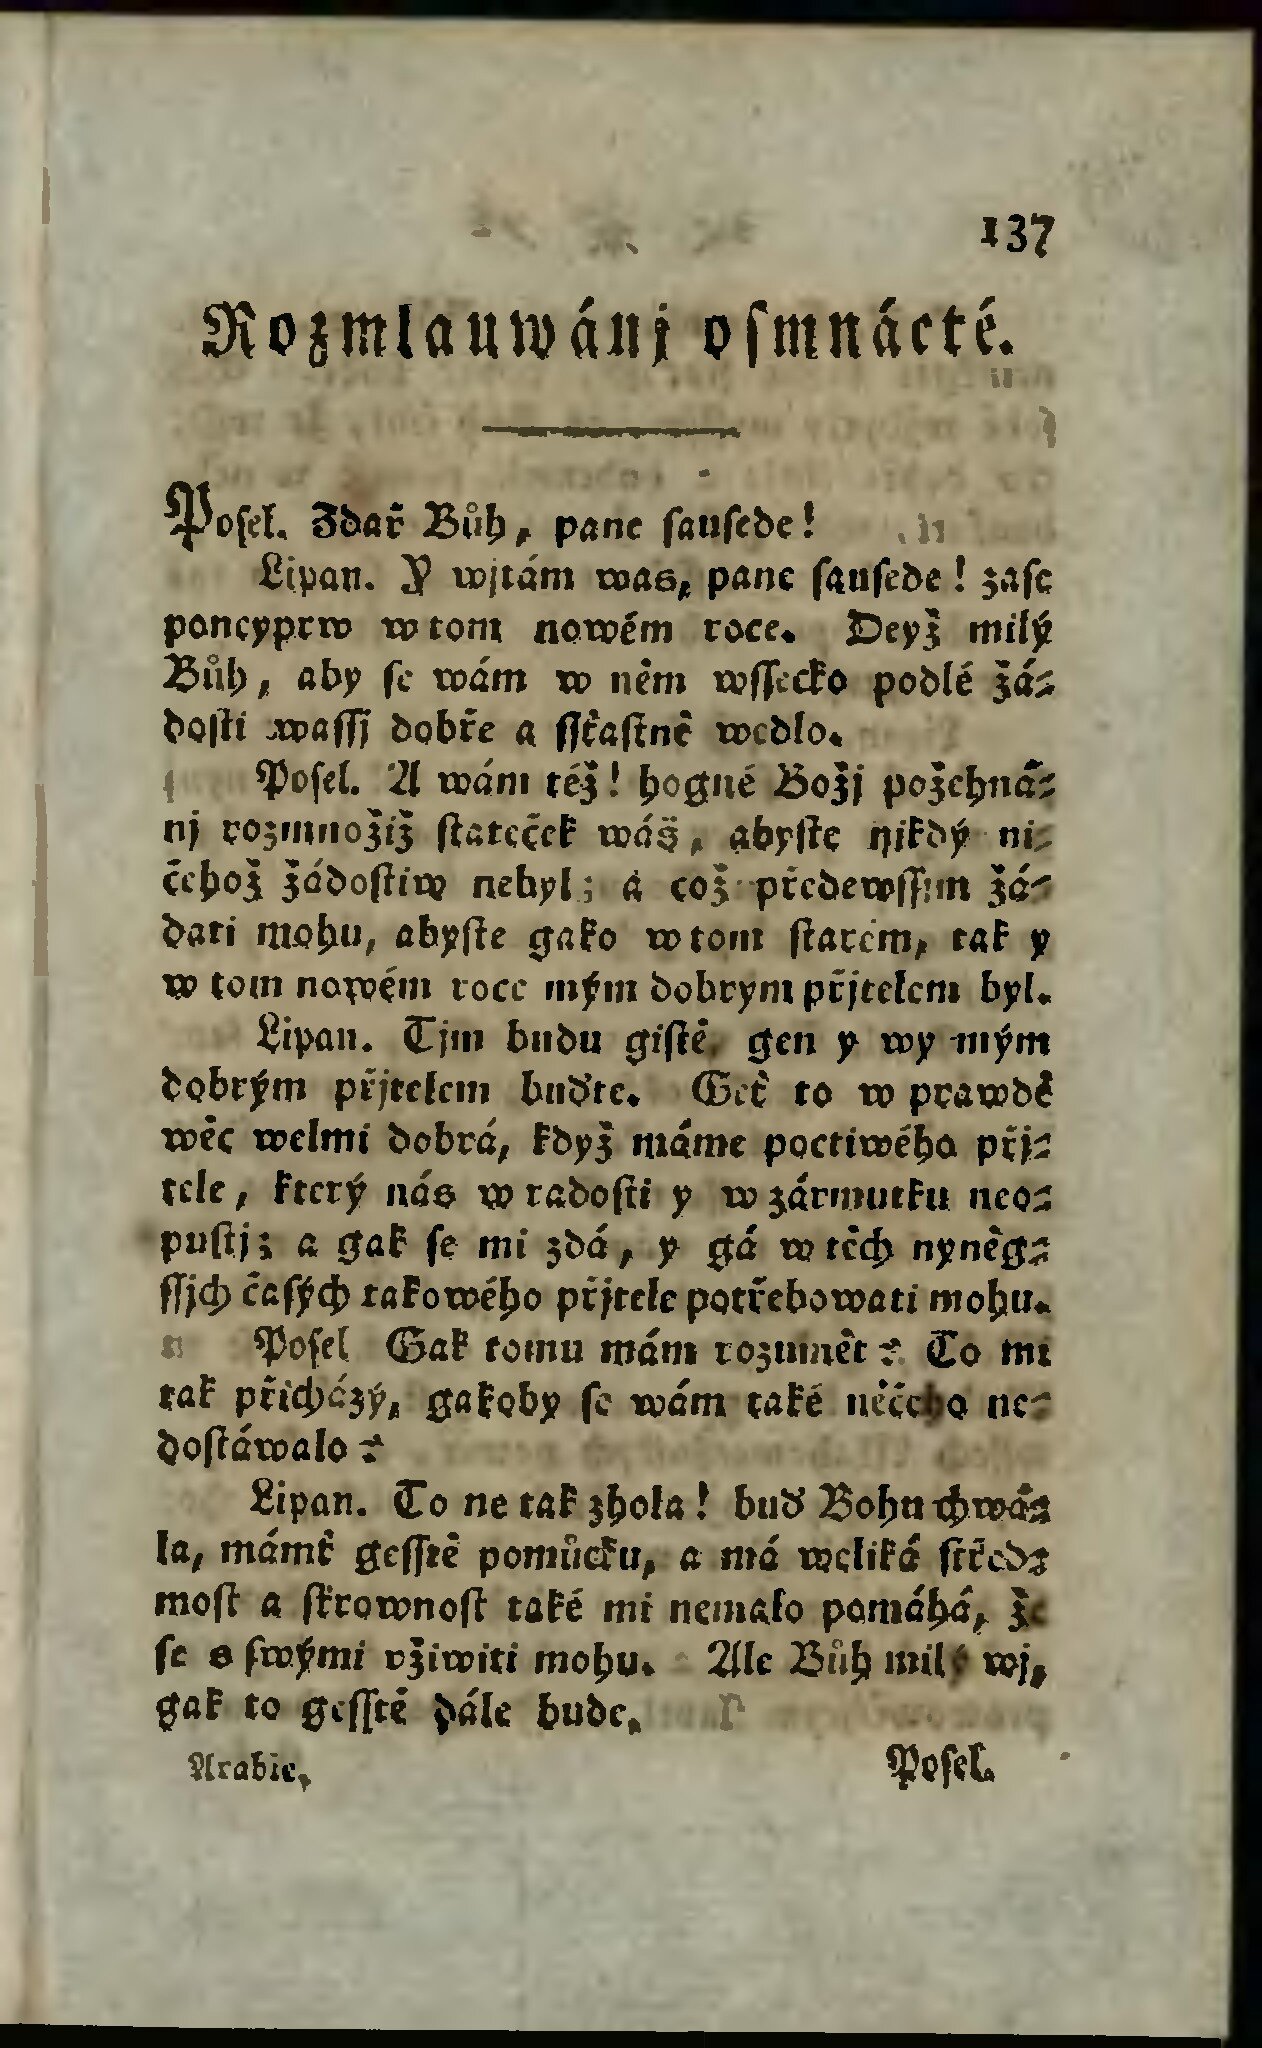 137
Rozmlauwánj osmnácté.
Posel. Zdař Bůh, pane sausede!
Lipan. Y wjtám was, pane sausede! zase
poneyprw w tom nowém roce. Deyž milý
Bůh, aby se wám w něm wssecko podlé žá-
dosti wassj dobře a ssťastně wedlo.
Posel. A wám též! hogné Božj požehná-
nj rozmnožiž stateček wáš, abyste nikdý ni-
čehož žádostiw nebyl; a což předewssim žá-
dati mohu, abyste gako w tom starém, tak y
w tom nowém roce mým dobrym přjtelem byl.
Lipan. Tjm budu gistě, gen y wy mým
dobrým přjtelem buďte. Geť to w prawdě
wěc welmi dobrá, když máme poctiwého přj-
tele, který nás w radosti y w zármutku neo-
pustj; a gak se mi zdá, y gá w těch nyněg-
ssjch časých takowého přjtele potřebowati mohu.
Posel Gak tomu mám rozumět? To mi
tak přicházý, gakoby se wám také něčeho ne-
dostáwalo?
Lipan. To ne tak zhola! buď Bohu chwá-
la, mámť gesstě pomůcku, a má weliká střed-
most a skrownost také mi nemalo pomáhá, že
se s swými vžiwiti mohu. Ale Bůh milý wj,
gak to gesstě dále bude.
Arabie. Posel.